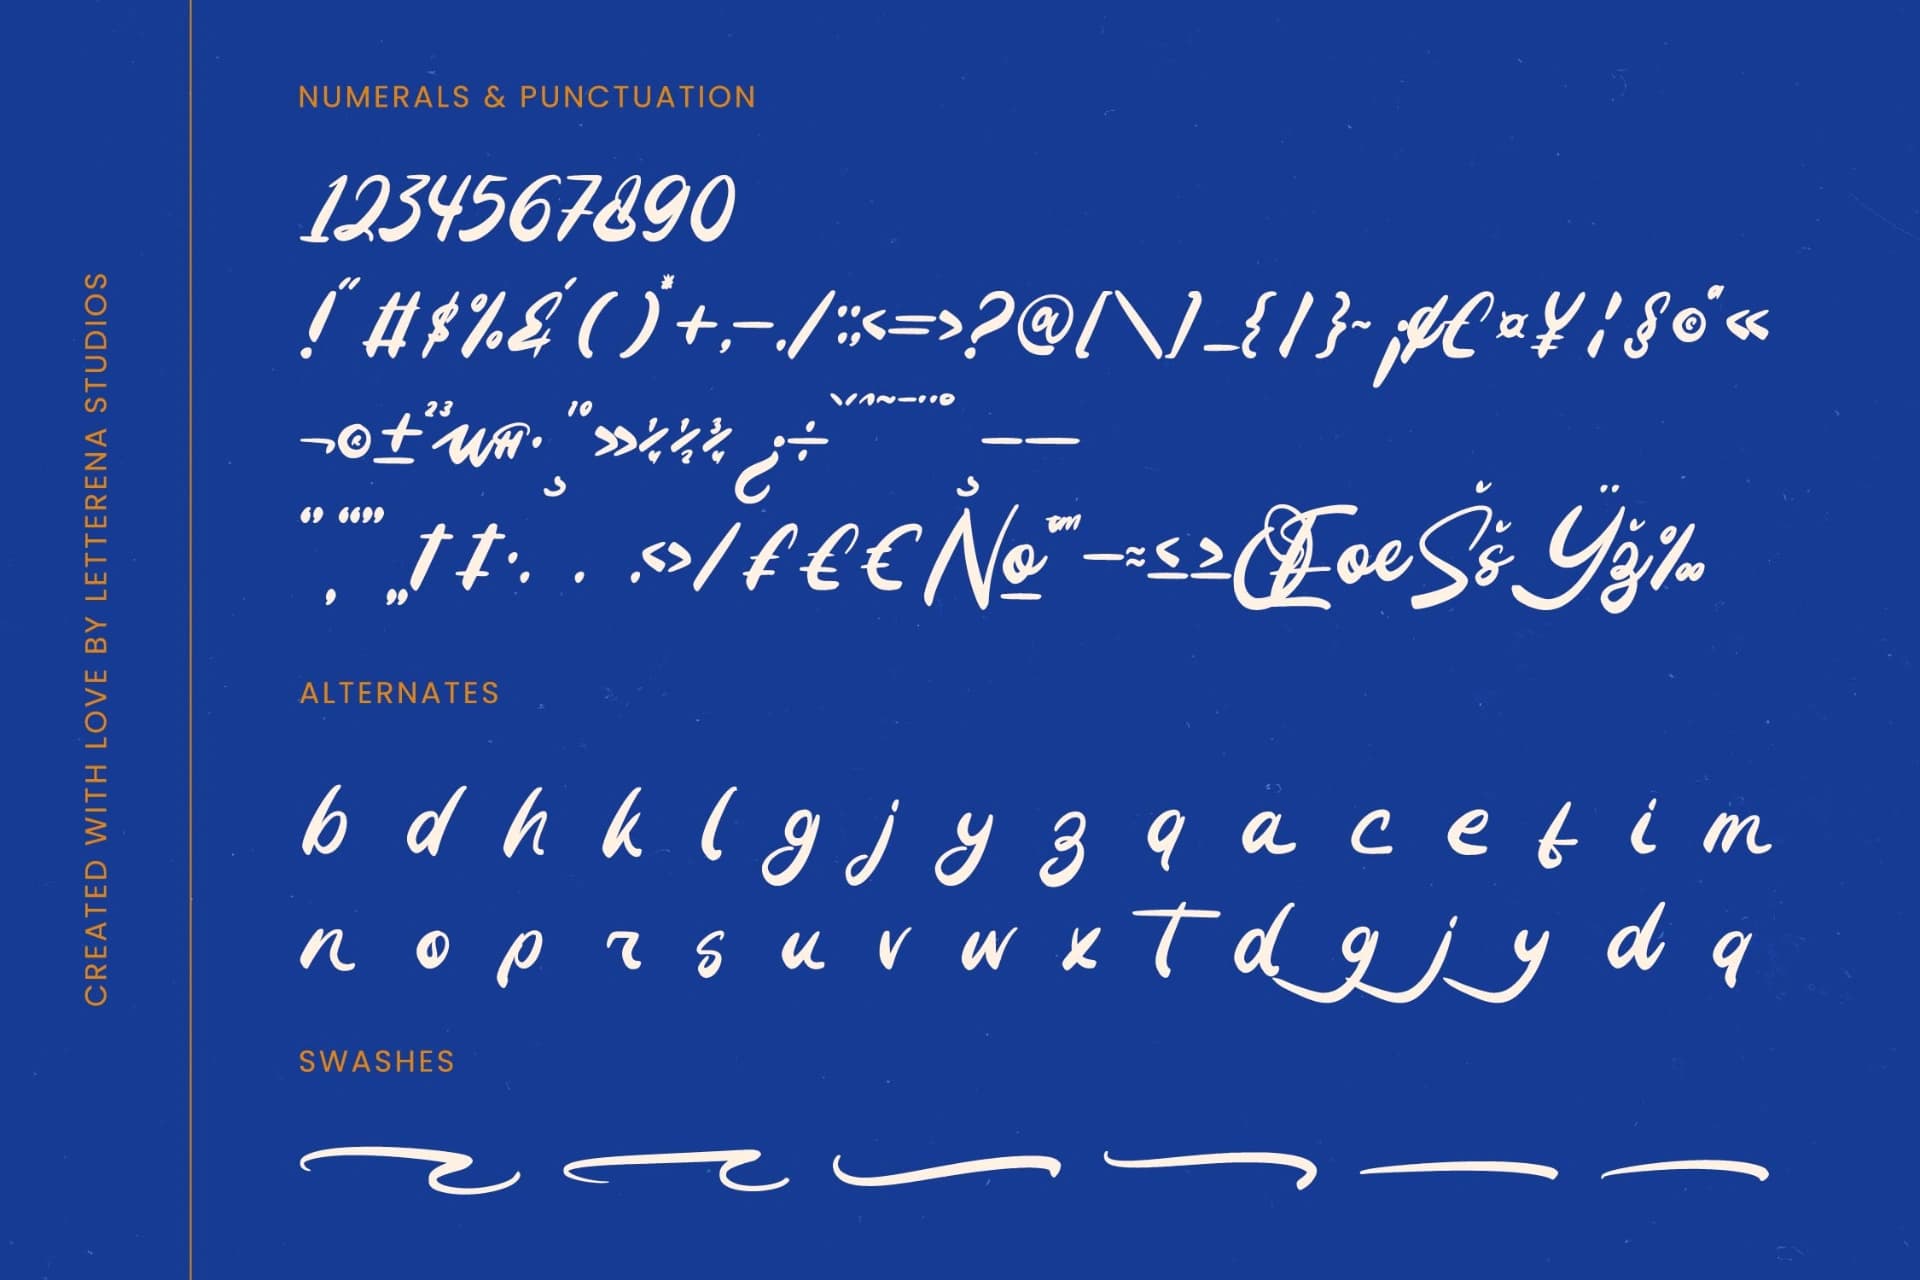 CREATED WITH LOVE BY LETTERENA STUDIOS
NUMERALS & PUNCTUATION
1234567890
!"#$%&'()*+,-./:;<=>?@[\]_{|}~¡¢£¤¥¦§©ª«
¬®±²³µ¶·¸¹º»¼½¾¿÷`´ˆ˜¯˘˙¨˚¸––
‘’“”‚„†‡•...‹›⁄₣₤€№™−≈≤≥ŒœŠšŸž‰
ALTERNATES
b d h k l g j y z q a c e f i m
n o p r s u v w x T d g j y d q
SWASHES